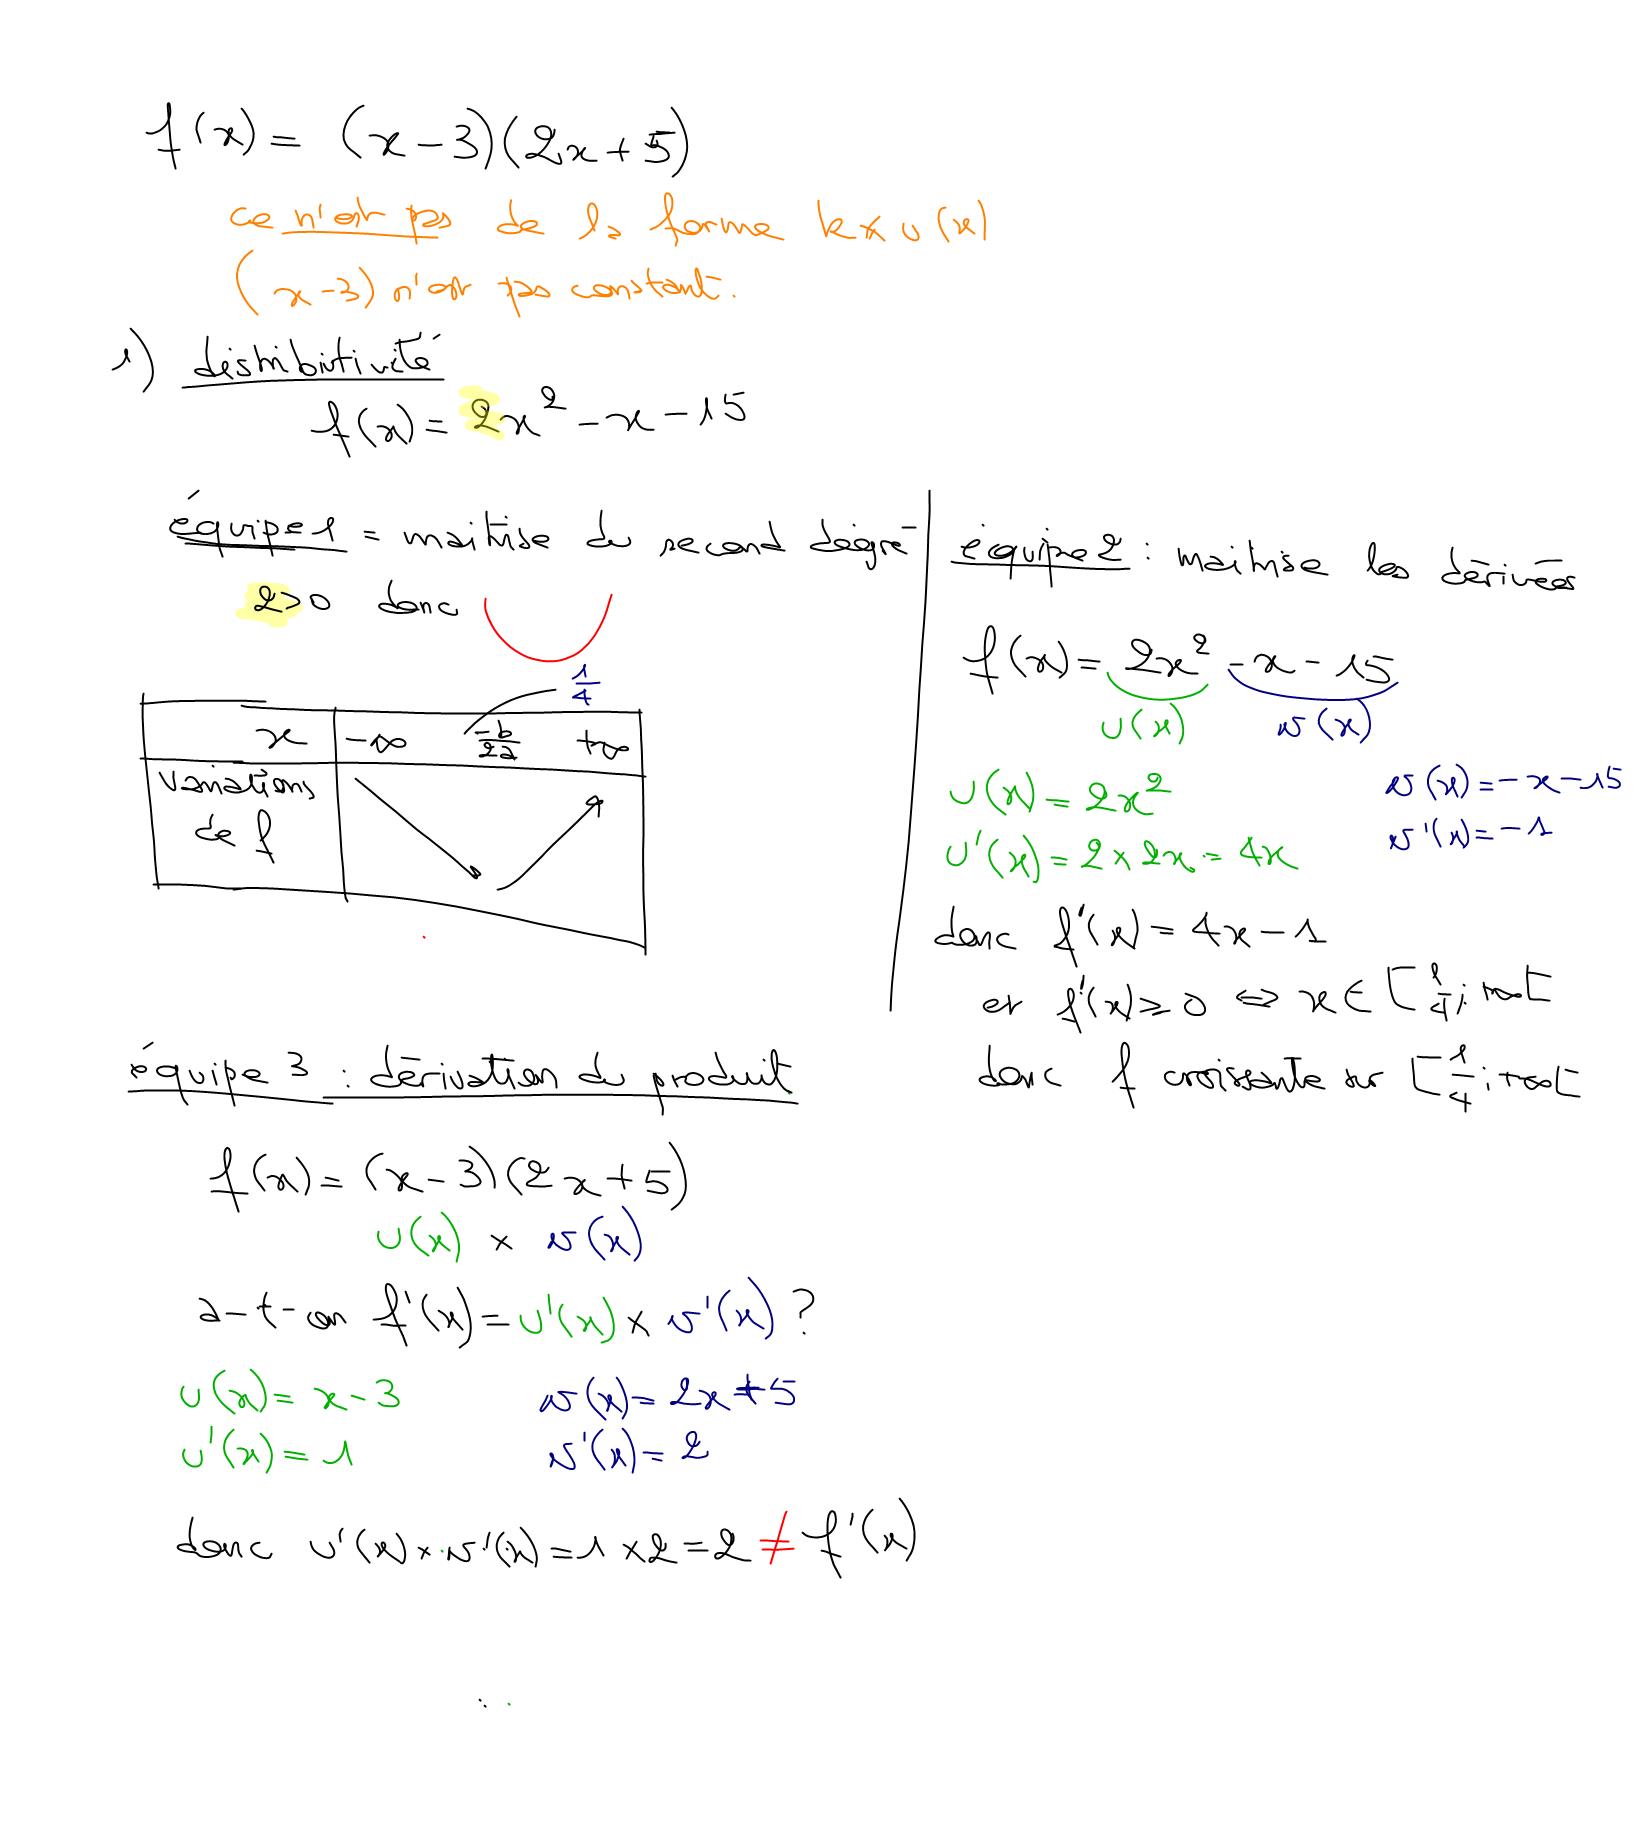 f(x) = (x-3)(2x+5)
ce n'est pas de la forme k × u(x)
(x-3) n'est pas constant.
1) distributivité
f(x) = 2x² - x - 15
équipe 1 = maitrise du second degré
2>0 donc
1/4
x -∞ -b/2a +∞
variations
de f
équipe 2 : maitrise les dérivées
f(x) = 2x² - x - 15
u(x) v(x)
u(x) = 2x² v(x) = -x-15
u'(x) = 2 × 2x = 4x v'(x) = -1
donc f'(x) = 4x - 1
et f'(x) ≥ 0 ⇔ x ∈ [1/4; +∞[
donc f croissante sur [1/4; +∞[
équipe 3 : dérivation du produit
f(x) = (x-3)(2x+5)
u(x) × v(x)
a-t-on f'(x) = u'(x) × v'(x) ?
u(x) = x-3 v(x) = 2x+5
u'(x) = 1 v'(x) = 2
donc u'(x) × v'(x) = 1 × 2 = 2 ≠ f'(x)